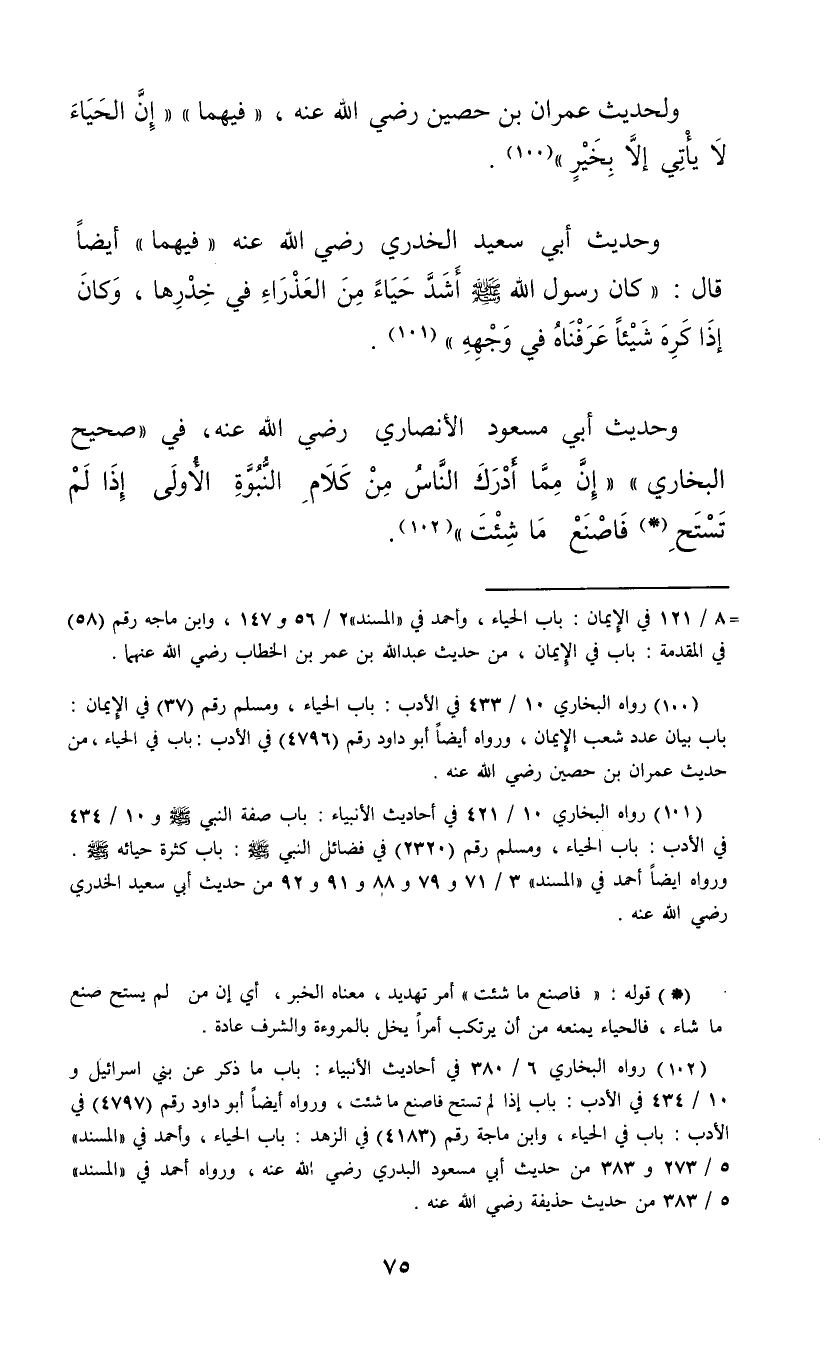 ولحديث عمران بن حصين رضي الله عنه ، « فيهما » « إِنَّ الحَيَاءَ
لَا يأْتِي إلَّا بِخَيْرٍ »(١٠٠) .
وحديث أبي سعيد الخدري رضي الله عنه « فيهما » أيضاً
قال : « كان رسول الله ﷺ أَشَدَّ حَيَاءً مِنَ العَذْرَاءِ في خِدْرِها ، وَكانَ
إذَا كَرِهَ شَيْئاً عَرَفْنَاهُ في وَجْهِهِ » (١٠١) .
وحديث أبي مسعود الأنصاري رضي الله عنه، في «صحيح
البخاري » « إِنَّ مِمَّا أَدْرَكَ النَّاسُ مِنْ كَلَامِ النُّبُوَّةِ الأُولَى إِذَا لَمْ
تَسْتَحِ (*) فَاصْنَعْ مَا شِئْتَ »(١٠٢).
= ٨ / ١٢١ في الإِيمان : باب الحياء ، وأحمد في «المسند»٢ / ٥٦ و ١٤٧ ، وابن ماجه رقم (٥٨)
في المقدمة : باب في الإِيمان ، من حديث عبدالله بن عمر بن الخطاب رضي الله عنهما .
(١٠٠) رواه البخاري ١٠ / ٤٣٣ في الأدب : باب الحياء ، ومسلم رقم (٣٧) في الإِيمان :
باب بيان عدد شعب الإِيمان ، ورواه أيضاً أبو داود رقم (٤٧٩٦) في الأدب : باب في الحياء ، من
حديث عمران بن حصين رضي الله عنه .
(١٠١) رواه البخاري ١٠ / ٤٢١ في أحاديث الأنبياء : باب صفة النبي ﷺ و ١٠ / ٤٣٤
في الأدب : باب الحياء ، ومسلم رقم (٢٣٢٠) في فضائل النبي ﷺ : باب كثرة حيائه ﷺ .
ورواه ايضاً أحمد في «المسند» ٣ / ٧١ و ٧٩ و ٨٨ و ٩١ و ٩٢ من حديث أبي سعيد الخدري
رضي الله عنه .
(*) قوله : « فاصنع ما شئت » أمر تهديد ، معناه الخبر ، أي إن من لم يستح صنع
ما شاء ، فالحياء يمنعه من أن يرتكب أمراً يخل بالمروءة والشرف عادة .
(١٠٢) رواه البخاري ٦ / ٣٨٠ في أحاديث الأنبياء : باب ما ذكر عن بني اسرائيل و
١٠ / ٤٣٤ في الأدب : باب إذا لم تستح فاصنع ما شئت ، ورواه أيضاً أبو داود رقم (٤٧٩٧) في
الأدب : باب في الحياء ، وابن ماجة رقم (٤١٨٣) في الزهد : باب الحياء ، وأحمد في «المسند»
٥ / ٢٧٣ و ٣٨٣ من حديث أبي مسعود البدري رضي الله عنه ، ورواه أحمد في «المسند»
٥ / ٣٨٣ من حديث حذيفة رضي الله عنه .
٧٥